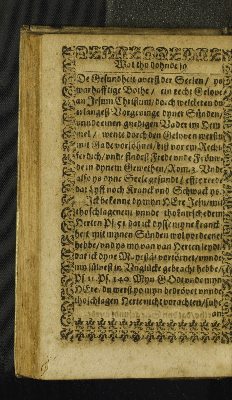 Wat tho dohnde sy
De Gesundheit auerst der Seelen / ys
warhafftige Bothe / ein recht Geloue
an Jesum Christum / dorch welcheren du
erlangest Vorgeuinge dyner Sünden /
vnde einen gnedigen Vader im Hem
mel / wente dorch den Geloven werstu
mit Gade vorsöhnet / bist vor em Recht-
ferdich / vnde findest Frede vnde Fröuw-
de in dynem Gewethen / Rom. 5. Vnde
also ys dyne Seele gesundt / efft erer
dat Lyff noch Kranck vnd Schwack ys.
Ick bekenne dy myn HEre Jesu / mit
thoschlagenem vnnde thobrockedem
Herten Ps. 51 dat ick dysse myne Kranck-
heit mit mynen Sünden wol vordeenet
hebbe / vnd ys my van van Herten leydt
dat ick dyne M. vörtörnet / vnnde
my sülvest in Unglücke gebracht hebbe /
Ps. 11. Ps. 140. Myn GOdt vnde myn
HEre / du werst yo myn bedrövet vnnde
thoschlagen Herte nicht vorachten / suhe
an